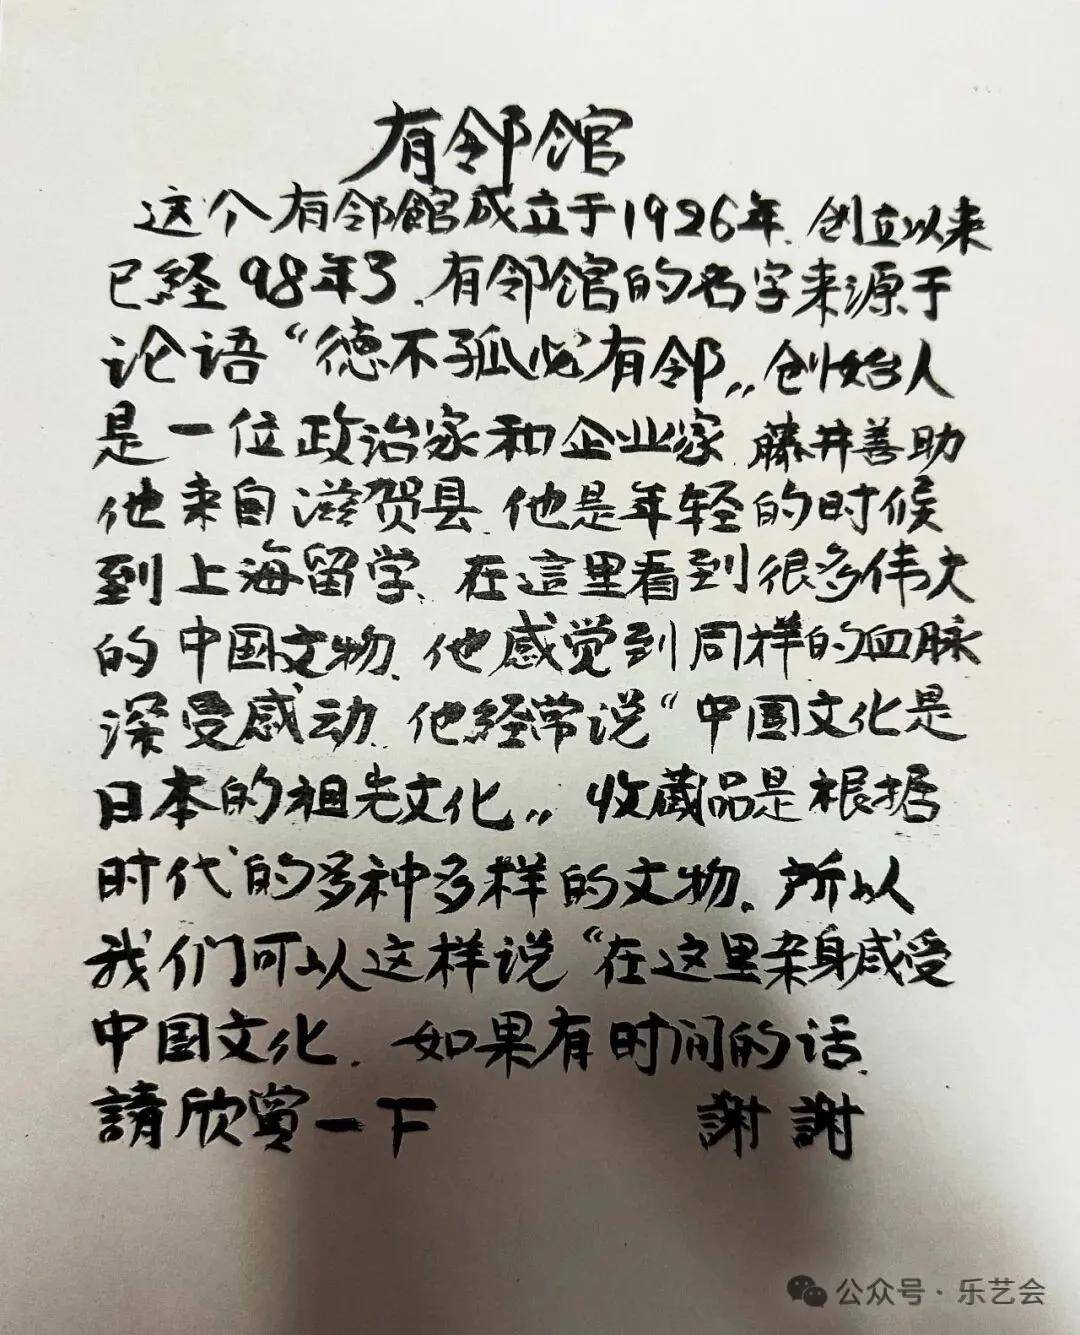 有邻馆
这个有邻館成立于1926年、创立以来
已経98年了、有邻馆的名字来源于
论语“德不孤必有邻„创始人
是一位政治家和企业家、藤井善助
他来自滋贺县、他是年轻的时候
到上海留学、在這里看到很多伟大
的中国文物、他感觉到同样的血脉
深受感动、他経常说“中国文化是
日本的祖先文化„收蔵品是根据
时代的多种多样的文物、所以
我们可以这样说“在这里亲身感受
中国文化、如果有时间的话、
請欣賞一下 謝謝
公众号·乐艺会